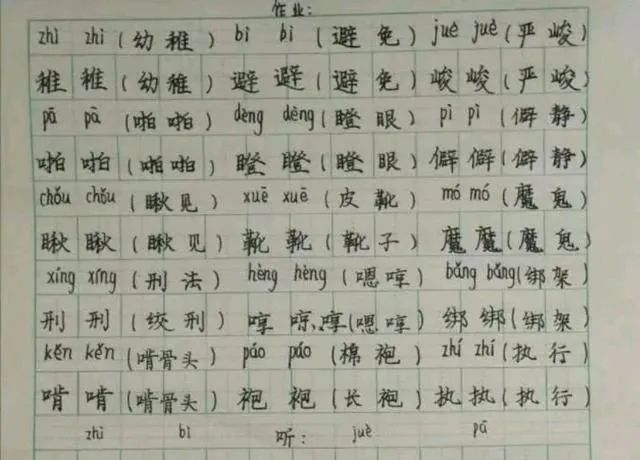 作业:
zhì zhì (幼稚) bì bì (避免) juè juè (严峻)
稚 稚 (幼稚) 避 避 (避免) 峻 峻 (严峻)
pā pā (啪啪) dèng dèng (瞪眼) pì pì (僻静)
啪 啪 (啪啪) 瞪 瞪 (瞪眼) 僻 僻 (僻静)
chǒu chǒu (瞅见) xuē xuē (皮靴) mó mó (魔鬼)
瞅 瞅 (瞅见) 靴 靴 (靴子) 魔 魔 (魔鬼)
xíng xíng (刑法) hèng hèng (嗯哼) bǎng bǎng (绑架)
刑 刑 (绞刑) 哼 哼、哼 (嗯哼) 绑 绑 (绑架)
kěn kěn (啃骨头) páo páo (棉袍) zhí zhí (执行)
啃 啃 (啃骨头) 袍 袍 (长袍) 执 执 (执行)
zhì bì 听: juè pā